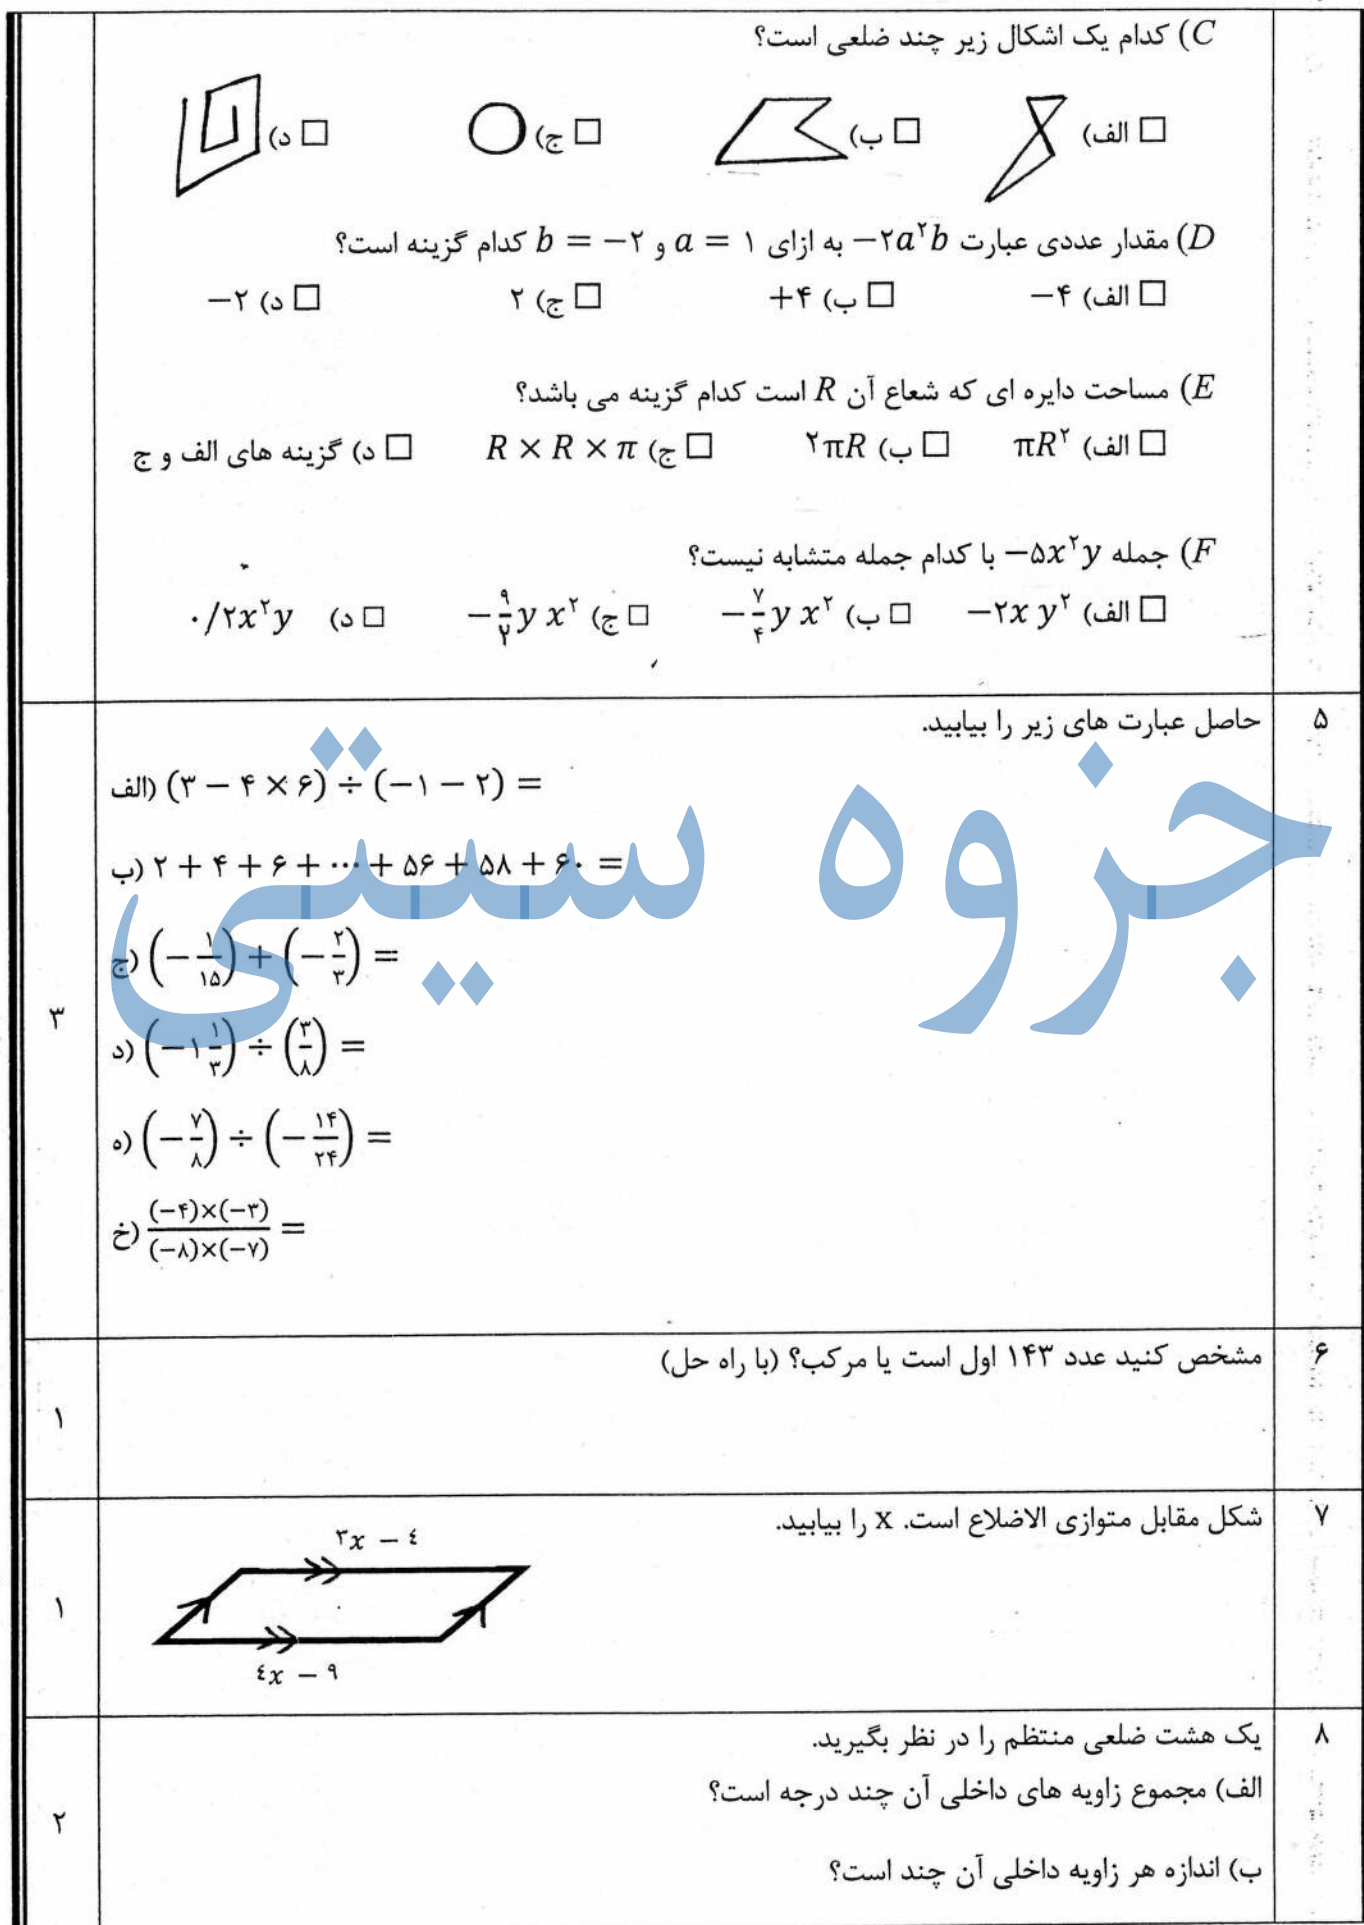 C) کدام یک اشکال زیر چند ضلعی است؟
□ الف) □ ب) □ ج) □ د)
D) مقدار عددی عبارت −۲a²b به ازای a = ۱ و b = −۲ کدام گزینه است؟
□ الف) −۴ □ ب) +۴ □ ج) ۲ □ د) −۲
E) مساحت دایره ای که شعاع آن R است کدام گزینه می باشد؟
□ الف) πR² □ ب) ۲πR □ ج) R × R × π □ د) گزینه های الف و ج
F) جمله −۵x²y با کدام جمله متشابه نیست؟
□ الف) −۲x y² □ ب) −۷/۴ y x² □ ج) −۹/۲ y x² □ د) ۰/۲x²y
۵ حاصل عبارت های زیر را بیابید.
الف) (۳ − ۴ × ۶) ÷ (−۱ − ۲) =
ب) ۲ + ۴ + ۶ + ⋯ + ۵۶ + ۵۸ + ۶۰ =
ج) (−۱/۱۵) + (−۲/۳) =
۳
د) (−۱ ۱/۳) ÷ (۳/۸) =
ه) (−۷/۸) ÷ (−۱۴/۲۴) =
خ) (−۴)×(−۳) / (−۸)×(−۷) =
جزوه سیتی
۶ مشخص کنید عدد ۱۴۳ اول است یا مرکب؟ (با راه حل)
۱
۷ شکل مقابل متوازی الاضلاع است. x را بیابید.
۳x − ٤
۱
٤x − ۹
۸ یک هشت ضلعی منتظم را در نظر بگیرید.
الف) مجموع زاویه های داخلی آن چند درجه است؟
۲
ب) اندازه هر زاویه داخلی آن چند است؟